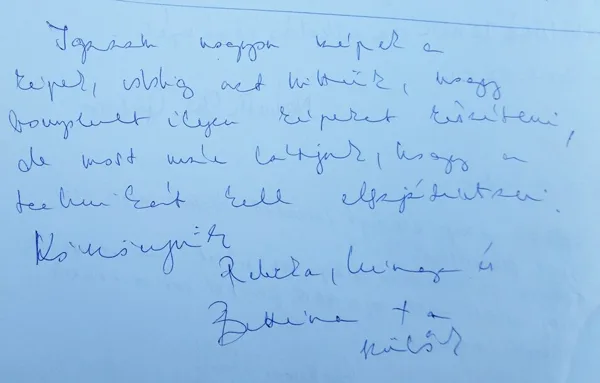 Igazán nagyon szépek a
képek, eddig azt hittük, hogy
bonyolult ilyen képeket készíteni,
de most már látjuk, hogy a
technikát kell elsajátítani.
Köszönjük
Rebeka, és
Bettina + a